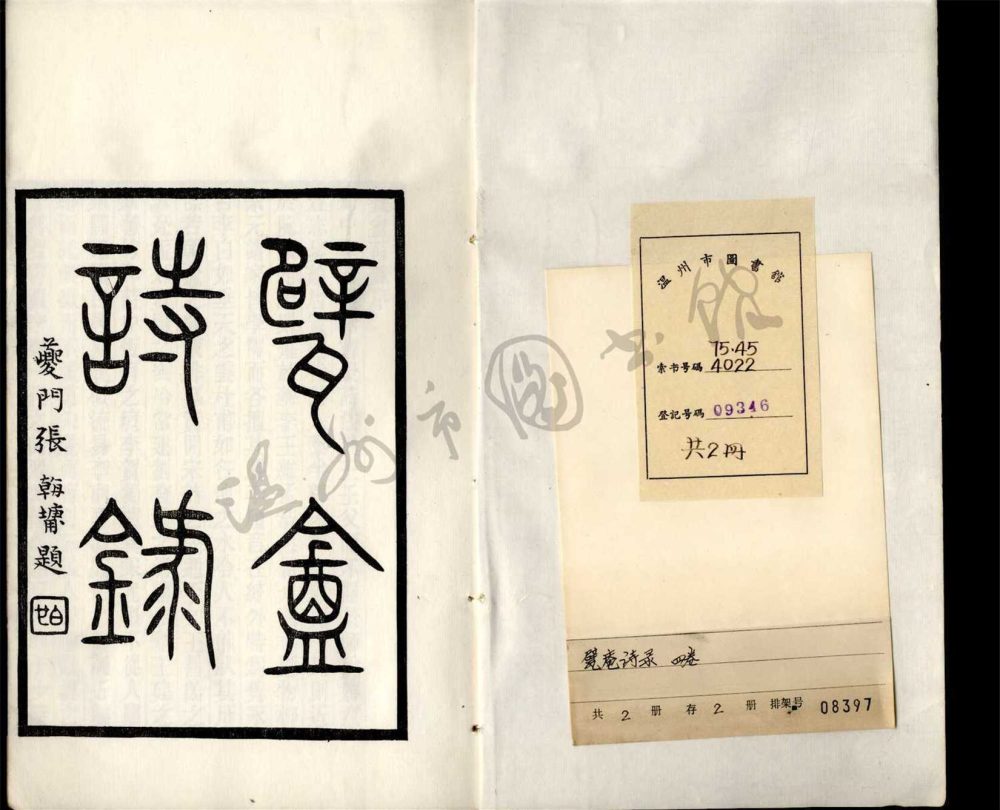 甓盦
詩錄
夔門張朝墉題
温州市圖書館
索书号码 75.45
4022
登记号码 09346
共2册
甓庵诗录 四卷
共 2 册 存 2 册 排架号 08397
温州市圖书馆